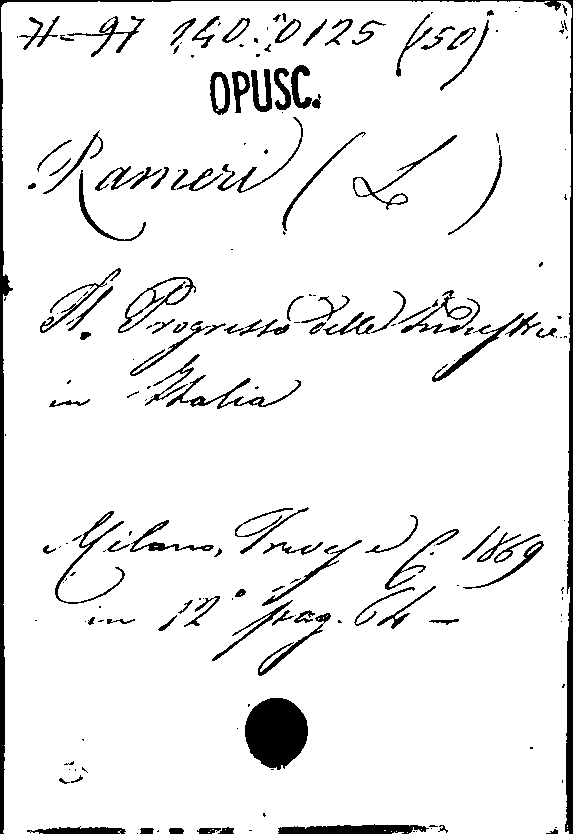 71-97 140.0125 (50)
OPUSC.
Rameri (L)
Il Progresso delle Industrie
in Italia
Milano, Treves e C. 1869
in 12° pag. 64 -